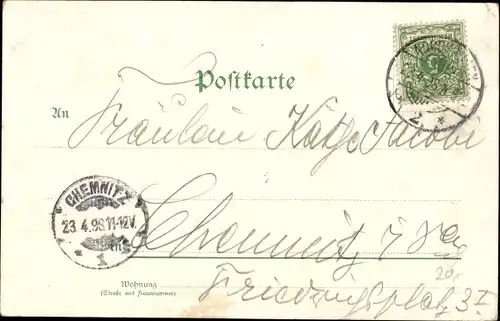 Postkarte
5
2 *
An Fräulein Käthe Jacobi
CHEMNITZ
23.4.98.11-12V.
* 1 *
in Chemnitz i/
20,-
Wohnung
(Straße und Hausnummer)
Friedrichsplatz 3 I